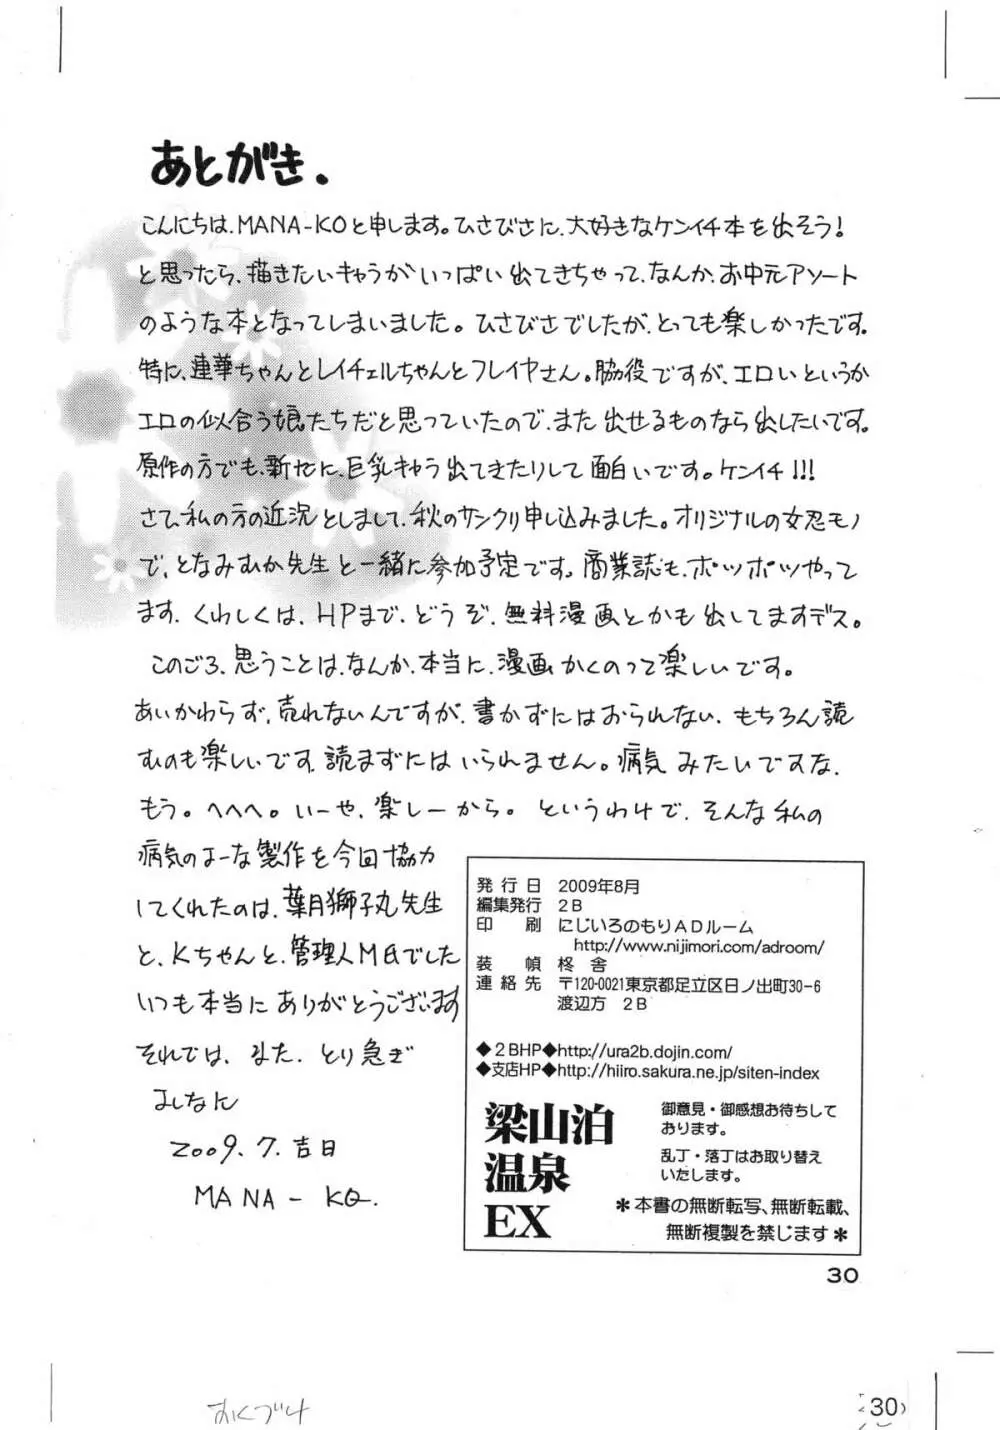 あとがき.
こんにちは、MANA-KOと申します。ひさびさに、大好きなケンイチ本を出そう!
と思ったら、描きたいキャラがいっぱい出てきちゃって、なんか、お中元アソート
のような本となってしまいました。ひさびさでしたが、とっても楽しかったです。
特に、連華ちゃんとレイチェルちゃんとフレイヤさん。脇役ですが、エロいというか
エロの似合う娘たちだと思っていたので、また出せるものなら出したいです。
原作の方でも、新たに、巨乳キャラ出てきたりして面白いです。ケンイチ!!!
さて、私の方の近況としまして、秋のサンクリ申し込みました。オリジナルの女忍モノ
で、となみむか先生と一緒に参加予定です。商業誌も、ポツポツやって
ます、くわしくは、HPまで、どうぞ、無料漫画とかも出してますデス。
このごろ、思うことは、なんか、本当に、漫画かくのって楽しいです。
あいかわらず、売れないんですが、書かずにはおられない、もちろん読
むのも楽しいです、読まずにはいられません。病気みたいですな、
もう。へへへ。いーや、楽しーから。というわけで、そんな私の
病気のよーな製作を今回協力
してくれたのは、葉月獅子丸先生
と、Kちゃんと、管理人M氏でした
いつも本当にありがとうございます
それでは、また、とり急ぎ
よしなに
2009.7.吉日
MANA-KO.
発行日 2009年8月
編集発行 2B
印刷 にじいろのもりADルーム
http://www.nijimori.com/adroom/
装幀 柊舎
連絡先 〒120-0021東京都足立区日ノ出町30-6
渡辺方 2B
◆2BHP◆http://ura2b.dojin.com/
◆支店HP◆http://hiiro.sakura.ne.jp/siten-index
梁山泊
温泉
EX
御意見・御感想お待ちして
おります。
乱丁・落丁はお取り替え
いたします。
＊本書の無断転写、無断転載、
無断複製を禁じます＊
30
おくづけ
30